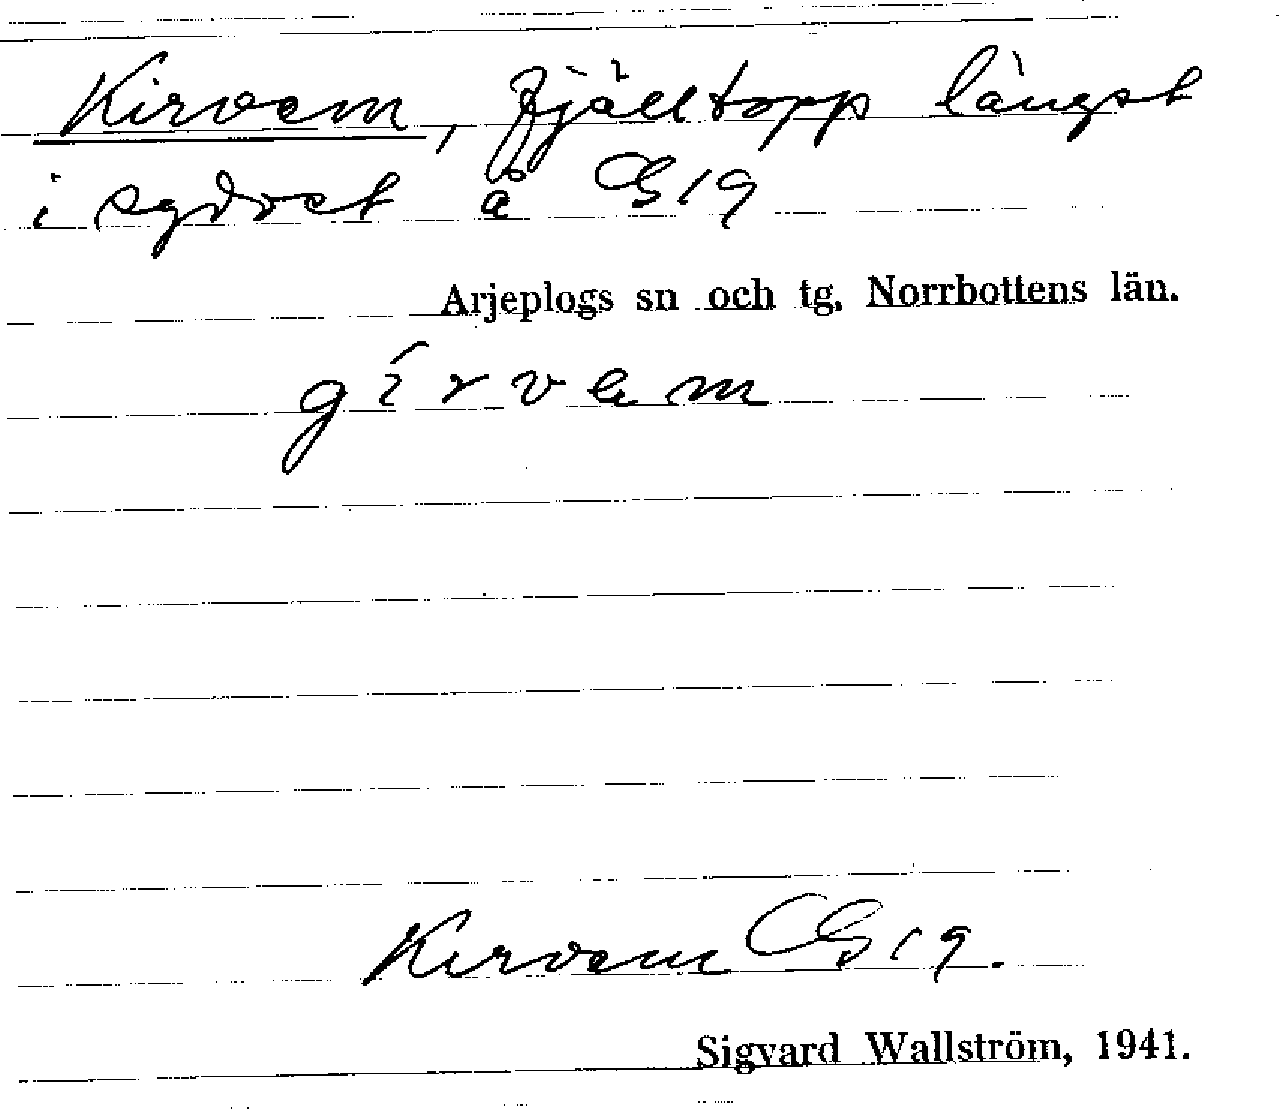 Kirvem, fjälltopp längst
i sydost å GS 19
Arjeplogs sn och tg. Norrbottens län.
gírvem
Kirvem GS 19.
Sigvard Wallström, 1941.